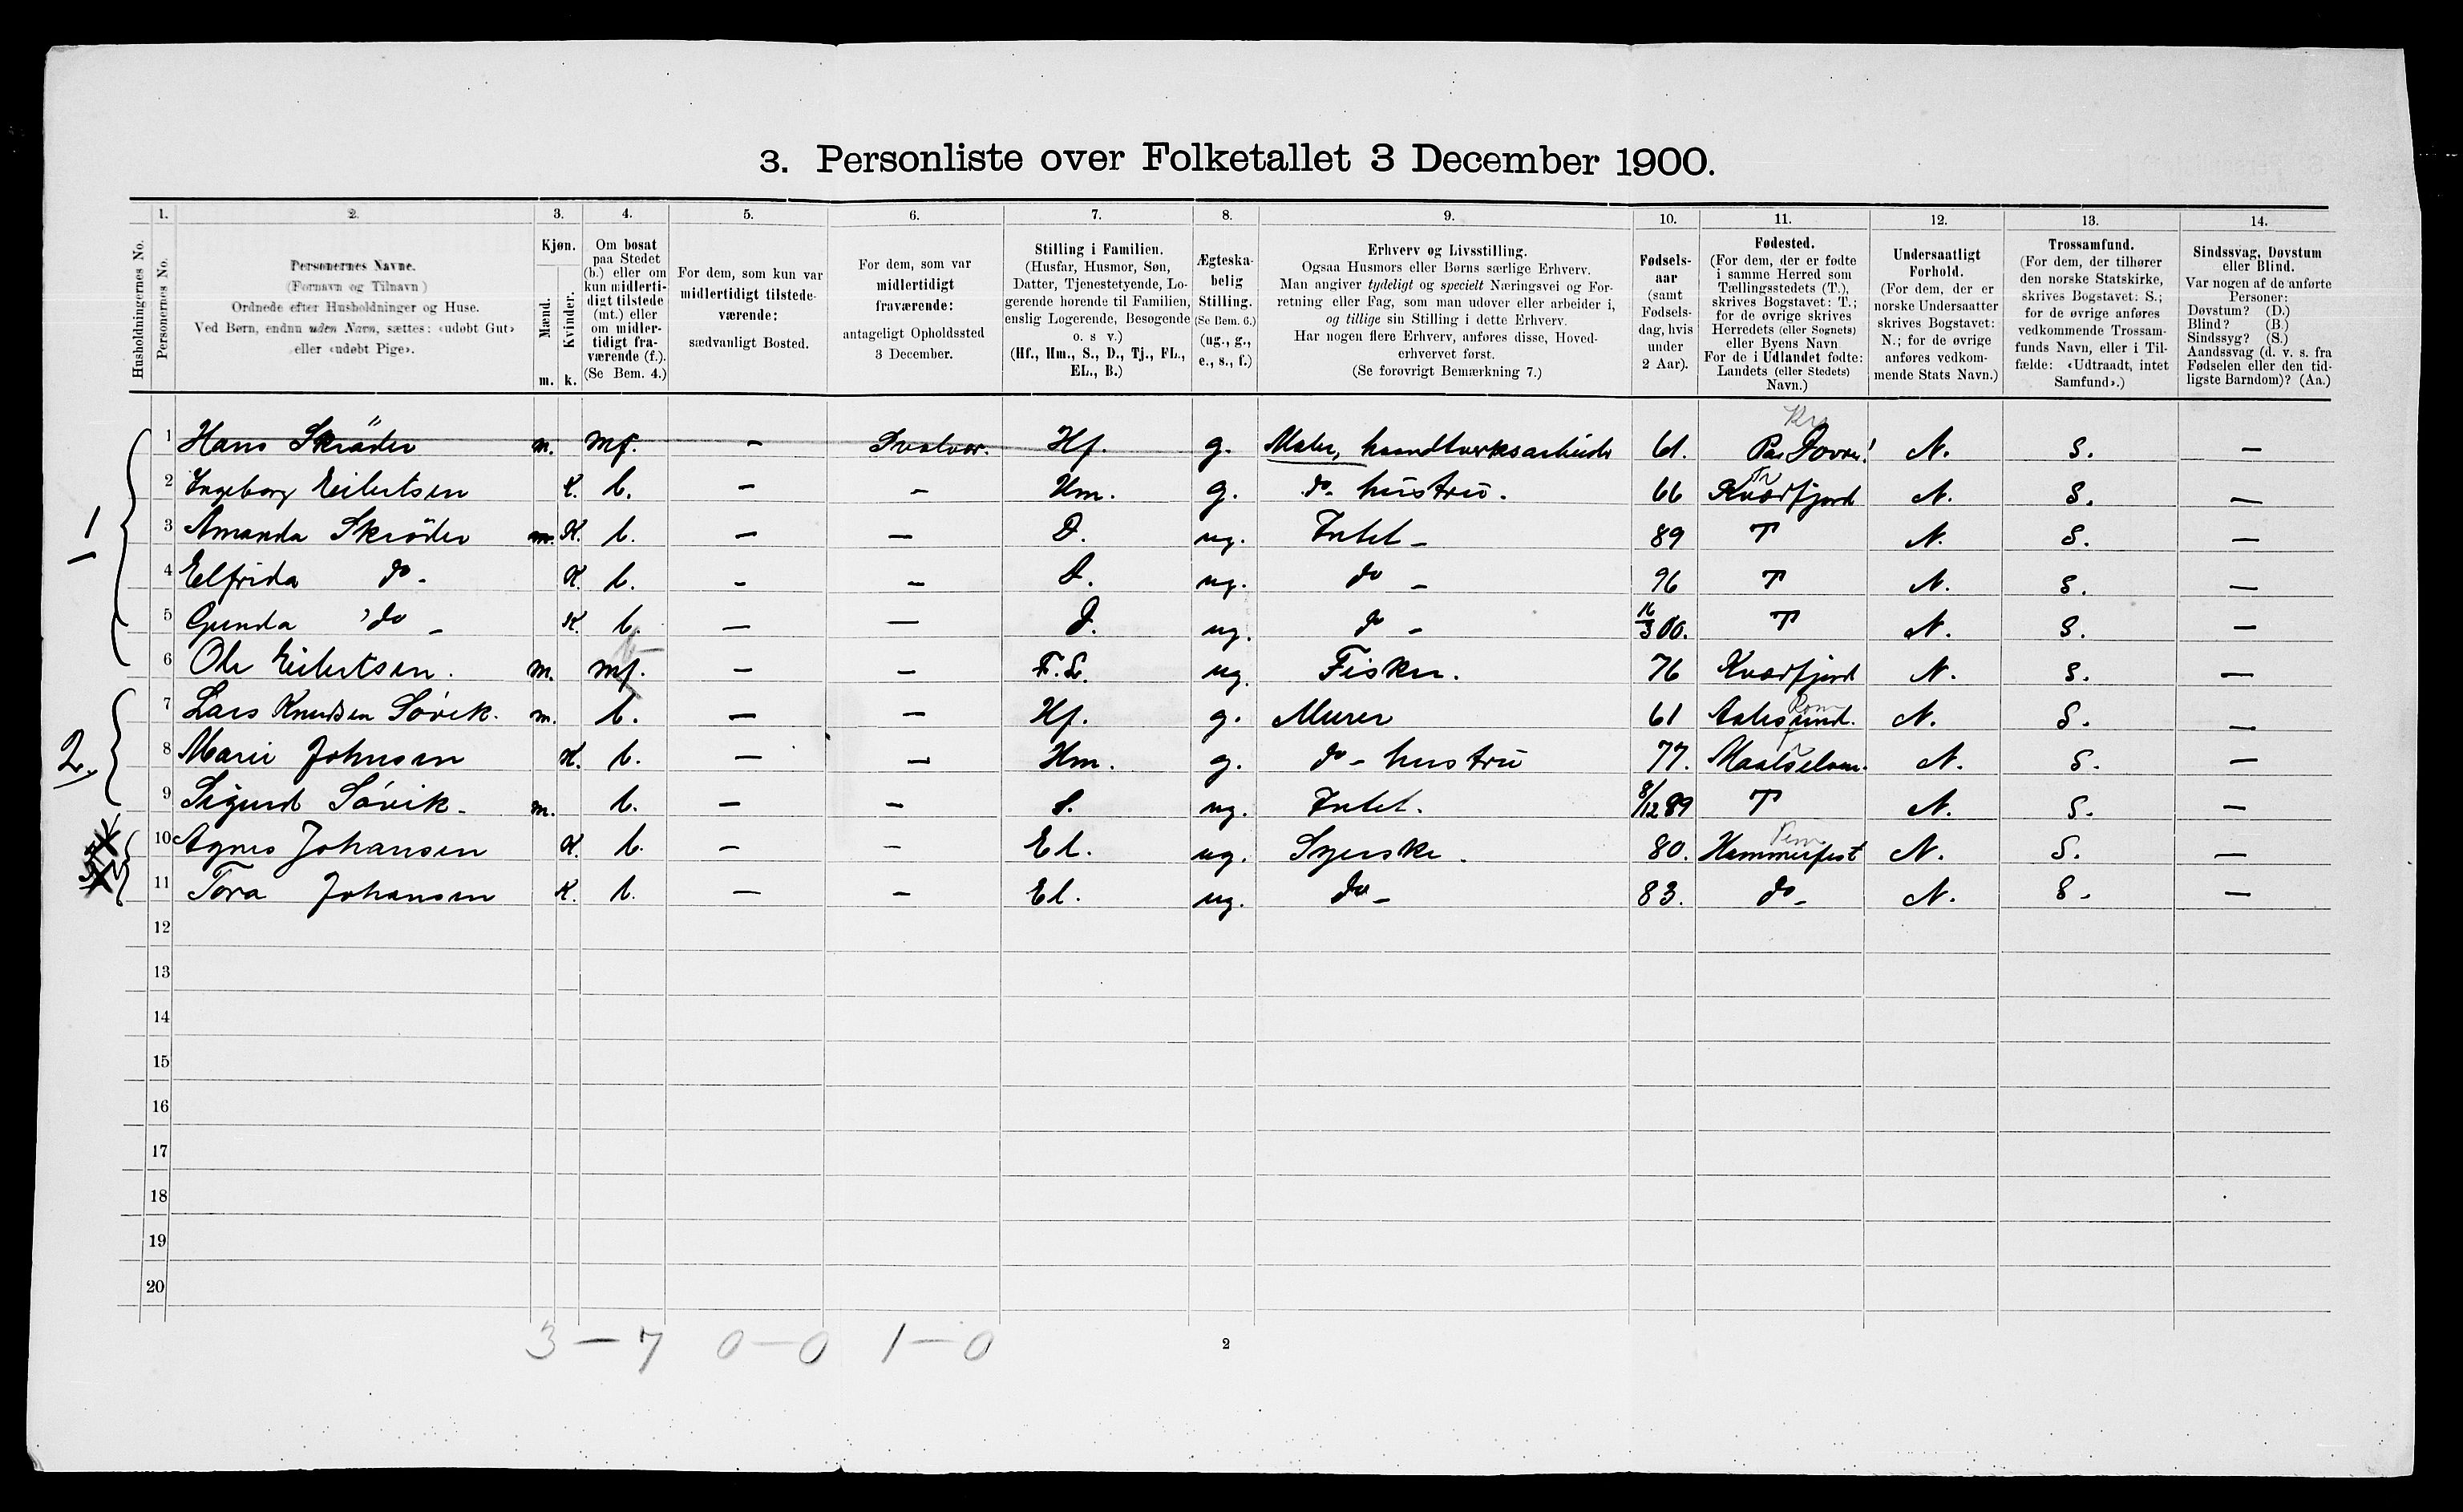 3. Personliste over Folketallet 3 December 1900.
1. 2. 3. 4. 5. 6. 7. 8. 9. 10. 11. 12. 13. 14.
Husholdningernes No.
Personernes No.
Personernes Navne.
(Fornavn og Tilnavn)
Ordnede efter Husholdninger og Huse.
Ved Børn, endnu uden Navn, sættes: «udøbt Gut»
eller «udøbt Pige».
Kjøn.
Mænd.
Kvinder.
m. k.
Om bosat
paa Stedet
(b.) eller om
kun midlerti-
digt tilstede
(mt.) eller
om midler-
tidigt fra-
værende (f.).
(Se Bem. 4.)
For dem, som kun var
midlertidigt tilstede-
værende:
sædvanligt Bosted.
For dem, som var
midlertidigt
fraværende:
antageligt Opholdssted
3 December.
Stilling i Familien.
(Husfar, Husmor, Søn,
Datter, Tjenestetyende, Lo-
gerende hørende til Familien,
enslig Logerende, Besøgende
o. s v.)
(Hf., Hm., S., D., Tj., FL.,
EL., B.)
Ægteska-
belig
Stilling.
(Se Bem. 6.)
(ug., g.,
e., s., f.)
Erhverv og Livsstilling.
Ogsaa Husmors eller Børns særlige Erhverv.
Man angiver tydeligt og specielt Næringsvei og For-
retning eller Fag, som man udøver eller arbeider i,
og tillige sin Stilling i dette Erhverv.
Har nogen flere Erhverv, anføres disse, Hoved-
erhvervet først.
(Se forøvrigt Bemærkning 7.)
Fødsels-
aar
(samt
Fødsels-
dag, hvis
under
2 Aar).
Fødested.
(For dem, der er fødte
i samme Herred som
Tællingsstedets (T.),
skrives Bogstavet: T.;
for de øvrige skrives
Herredets (eller Sognets)
eller Byens Navn
For de i Udlandet fødte:
Landets (eller Stedets)
Navn.)
Undersaatligt
Forhold.
(For dem, der er
norske Undersaatter
skrives Bogstavet:
N.; for de øvrige
anføres vedkom-
mende Stats Navn.)
Trossamfund.
(For dem, der tilhører
den norske Statskirke,
skrives Bogstavet: S.;
for de øvrige anføres
vedkommende Trossam-
funds Navn, eller i Til-
fælde: «Udtraadt, intet
Samfund».)
Sindssvag, Døvstum
eller Blind.
Var nogen af de anførte
Personer:
Døvstum? (D.)
Blind? (B.)
Sindssyg? (S.)
Aandssvag (d. v. s. fra
Fødselen eller den tid-
ligste Barndom)? (Aa.)
1 1 Hans Skröder m. mf. — Svolvær. Hf. g. Maler, haandtverksarbeider 61. Dovre! N. S. —
2 Ingeborg Eilertsen K. b. — — Hm. g. do - hustru. 66 Kvædfjord N. S. —
3 Amanda Skröder m. K. b. — — D. ug. Intet — 89 T N. S. —
4 Elfrida do - K. b. — — D. ug. do — 96 T N. S. —
5 Gunda do - K. b. — — D. ug. do — 16/3 00. T N. S. —
6 Ole Eilertsen. m. mf. — — F.L. ug. Fisker. 76 Kvædfjord N. S. —
2. 7 Lars Knudsen Sövik. m. b. — — Hf. g. Murer 61 Aalesund. N. S. —
8 Marie Johnsen K. b. — — Hm. g. do - hustru 77. Maalselven. N. S. —
9 Sigurd Sövik - m. b. — — S. ug. Intet. 8/12 89 T N. S. —
10 Agnes Johansen K. b. — — El. ug. Syerske. 80. Hammerfest N. S. —
11 Tora Johansen K. b. — — El. ug. do - 83. do - N. S. —
12
13
14
15
16
17
18
19
20
3 — 7 0 — 0 1 — 0
2